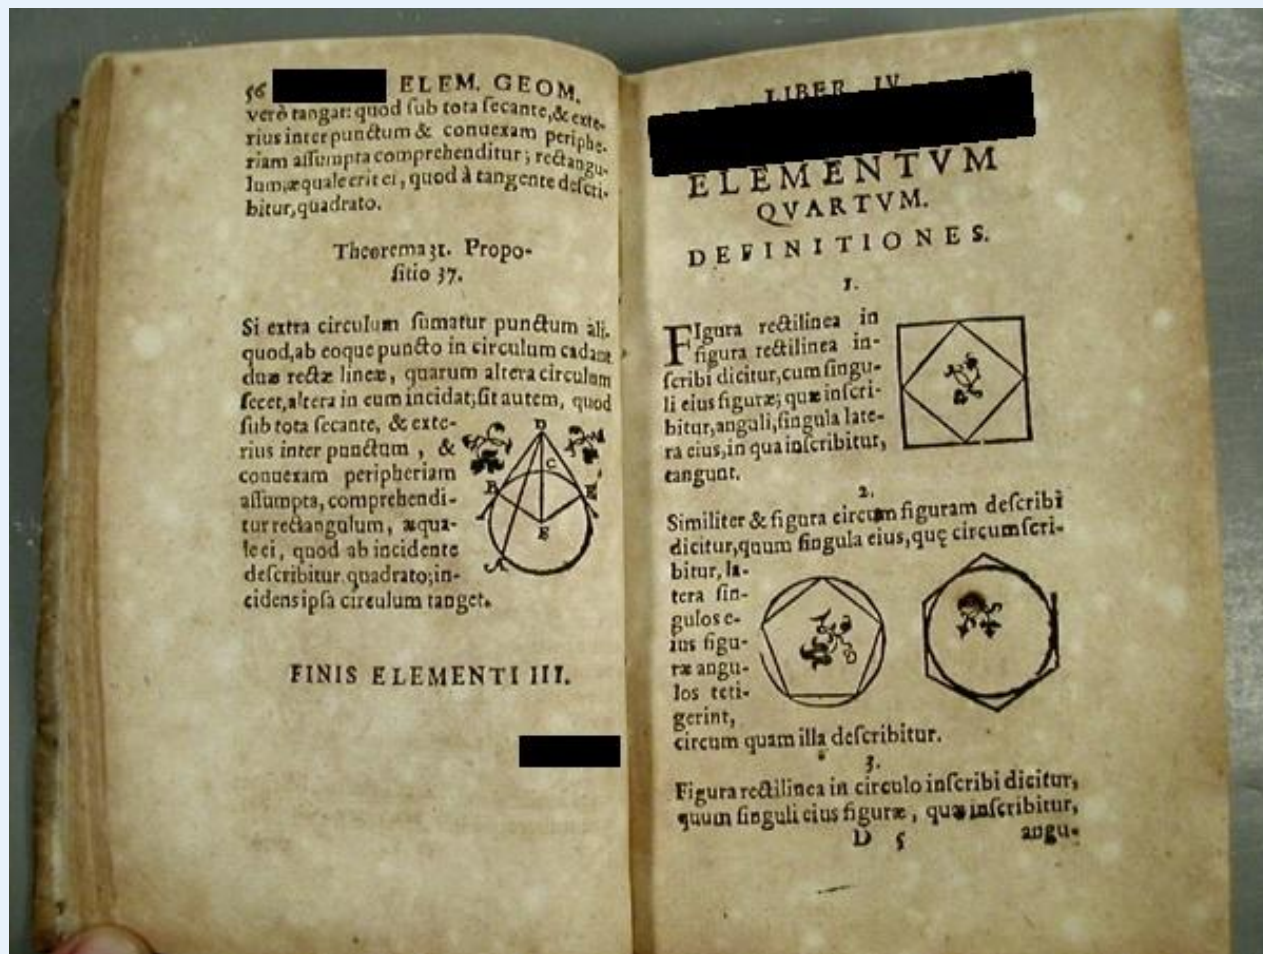 56 ELEM. GEOM.
verò tangat: quod ſub tota ſecante, & exte-
rius inter punctum & conuexam periphe-
riam aſſumpta comprehenditur; rectangu-
lum, æquale erit ei, quod à tangente deſcri-
bitur, quadrato.
Theorema 31. Propo-
ſitio 37.
Si extra circulum ſumatur punctum ali-
quod, ab eoque puncto in circulum cadant
duæ rectæ lineæ, quarum altera circulum
ſecet, altera in eum incidat; ſit autem, quod
ſub tota ſecante, & exte-
rius inter punctum, &
conuexam peripheriam
aſſumpta, comprehendi-
tur rectangulum, æqua-
le ei, quod ab incidente
deſcribitur quadrato; in-
cidens ipſa circulum tanget.
D
C
B
E
A
FINIS ELEMENTI III.
LIBER IV
ELEMENTVM
QVARTVM.
DEFINITIONES.
1.
FIgura rectilinea in
figura rectilinea in-
ſcribi dicitur, cum ſingu-
li eius figuræ; quæ inſcri-
bitur, anguli, ſingula late-
ra eius, in qua inſcribitur,
tangunt.
2.
Similiter & figura circum figuram deſcribi
dicitur, quum ſingula eius, quę circumſcri-
bitur, la-
tera ſin-
gulos e-
ius figu-
ræ angu-
los teti-
gerint,
circum quam illa deſcribitur.
3.
Figura rectilinea in circulo inſcribi dicitur,
quum ſinguli eius figuræ, quæ inſcribitur,
D 5 angu-